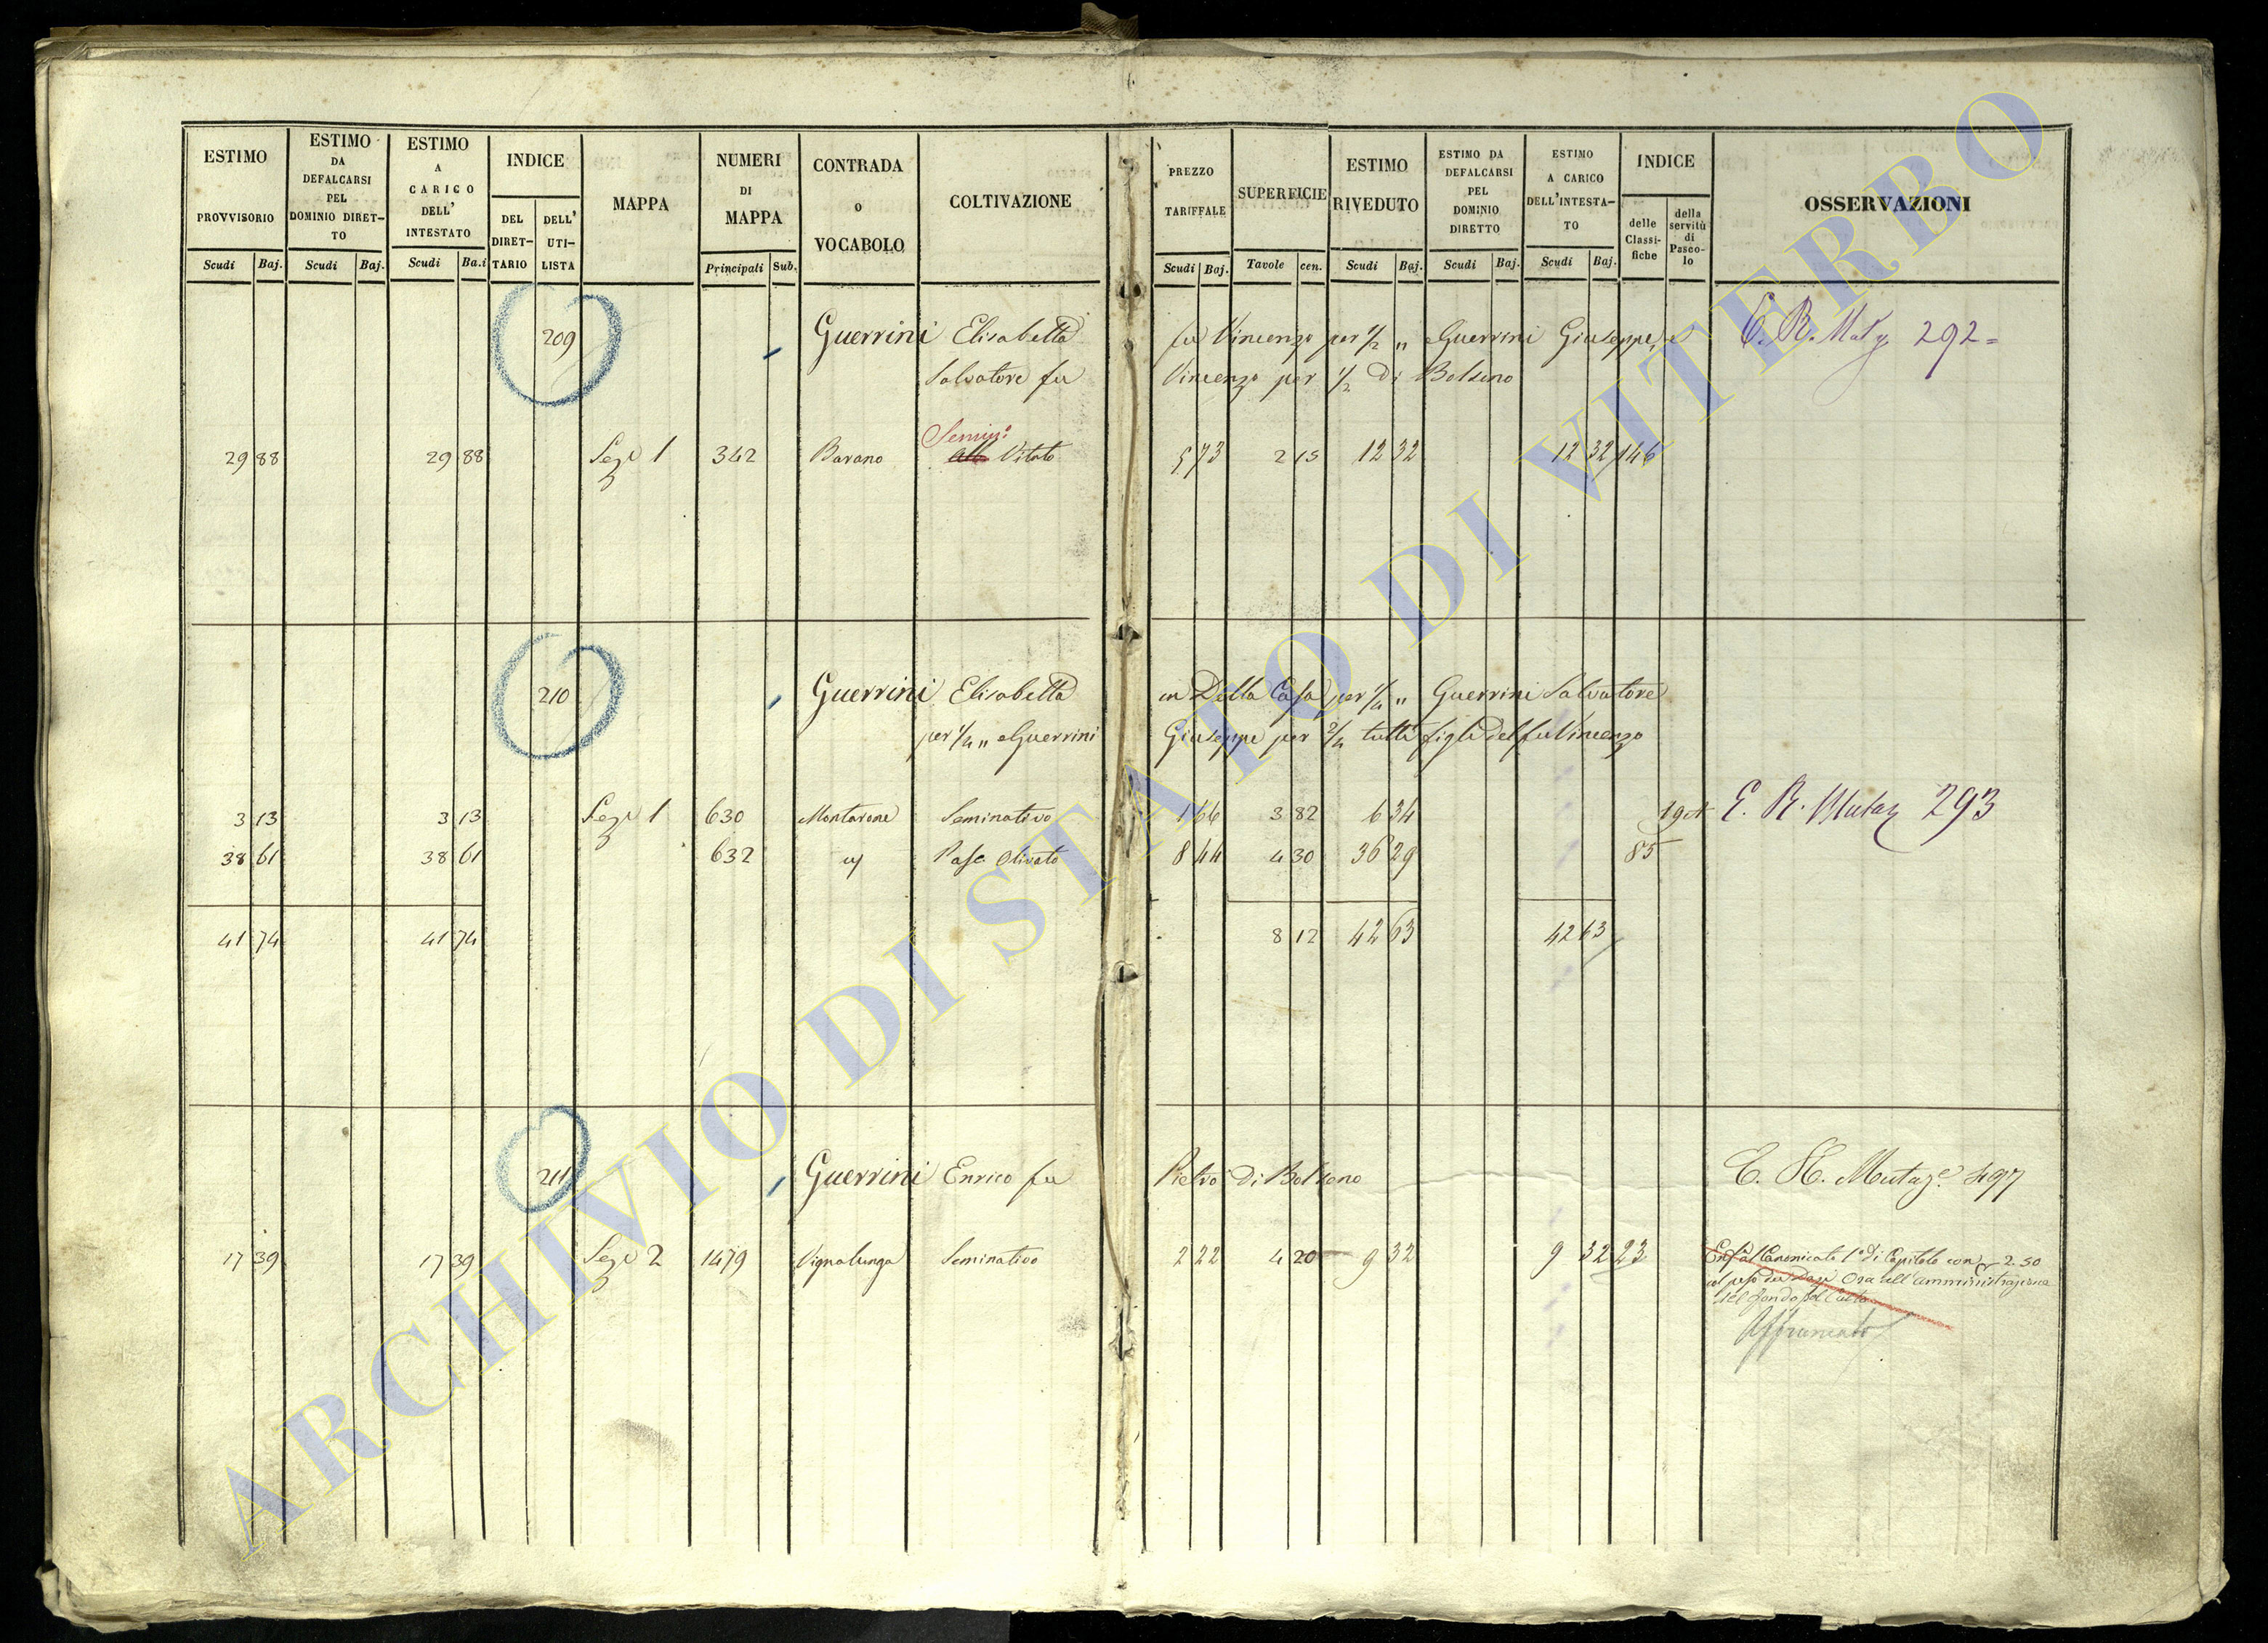 ESTIMO PROVVISORIO
Scudi Baj.
ESTIMO DA DEFALCARSI PEL DOMINIO DIRET-TO
Scudi Baj.
ESTIMO A CARICO DELL' INTESTATO
Scudi Ba.i
INDICE
DEL DIRET-TARIO
DELL' UTI-LISTA
MAPPA
NUMERI DI MAPPA
Principali Sub.
CONTRADA o VOCABOLO
COLTIVAZIONE
PREZZO TARIFFALE
Scudi Baj.
SUPERFICIE
Tavole cen.
ESTIMO RIVEDUTO
Scudi Baj.
ESTIMO DA DEFALCARSI PEL DOMINIO DIRETTO
Scudi Baj.
ESTIMO A CARICO DELL'INTESTA-TO
Scudi Baj.
INDICE
delle Classi-fiche
della servitù di Pasco-lo
OSSERVAZIONI
209 Guerrini Elisabetta fu Vincenzo per 1/2 " Guerrini Giuseppe, e 292
Salvatore fu Vincenzo per 1/2 di Bolseno
Semin:
29 88 29 88 Sez 1 342 Barano Vitato 5 73 2 15 12 32 12 32 146
210 Guerrini Elisabetta in Della Casa per 1/4 " Guerrini Salvatore
per 1/4 " Guerrini Giuseppe per 2/4 tutti figli del fu Vincenzo
3 13 3 13 Sez 1 630 Montarone Seminativo 1 66 3 82 6 34 E. R. Mutaz 293
38 61 38 61 632 Pasc Olivato 8 44 4 30 36 29 85
41 74 41 74 8 12 42 63 42 63
211 Guerrini Enrico fu Pietro di Bolseno Mutaz.e 497
17 39 17 39 Sez 2 1479 Vignalunga Seminativo 2 22 4 20 9 32 9 32 23 Canonicato 1° di Capitolo con 2.50
Ora all'amministrazione
del fondo pel Culto
Affrancato
ARCHIVIO DI STATO DI VITERBO